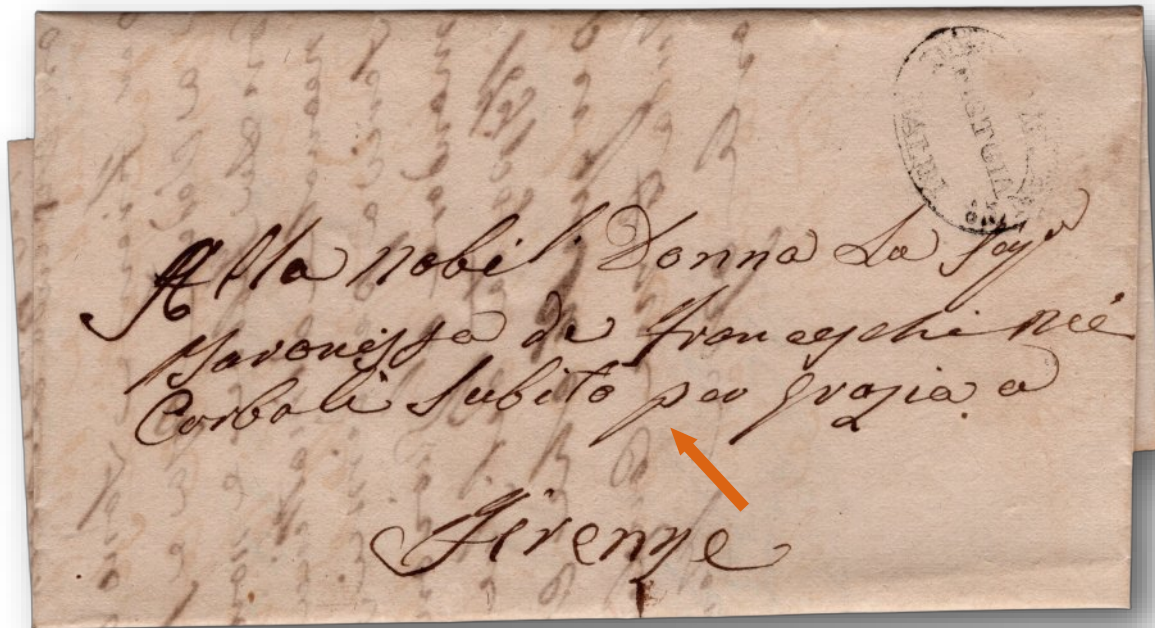 PISTOIA
Alla Nobil Donna La Sigra
Baronessa de Franceschi Née
Corboli Subito per grazia a
Firenze